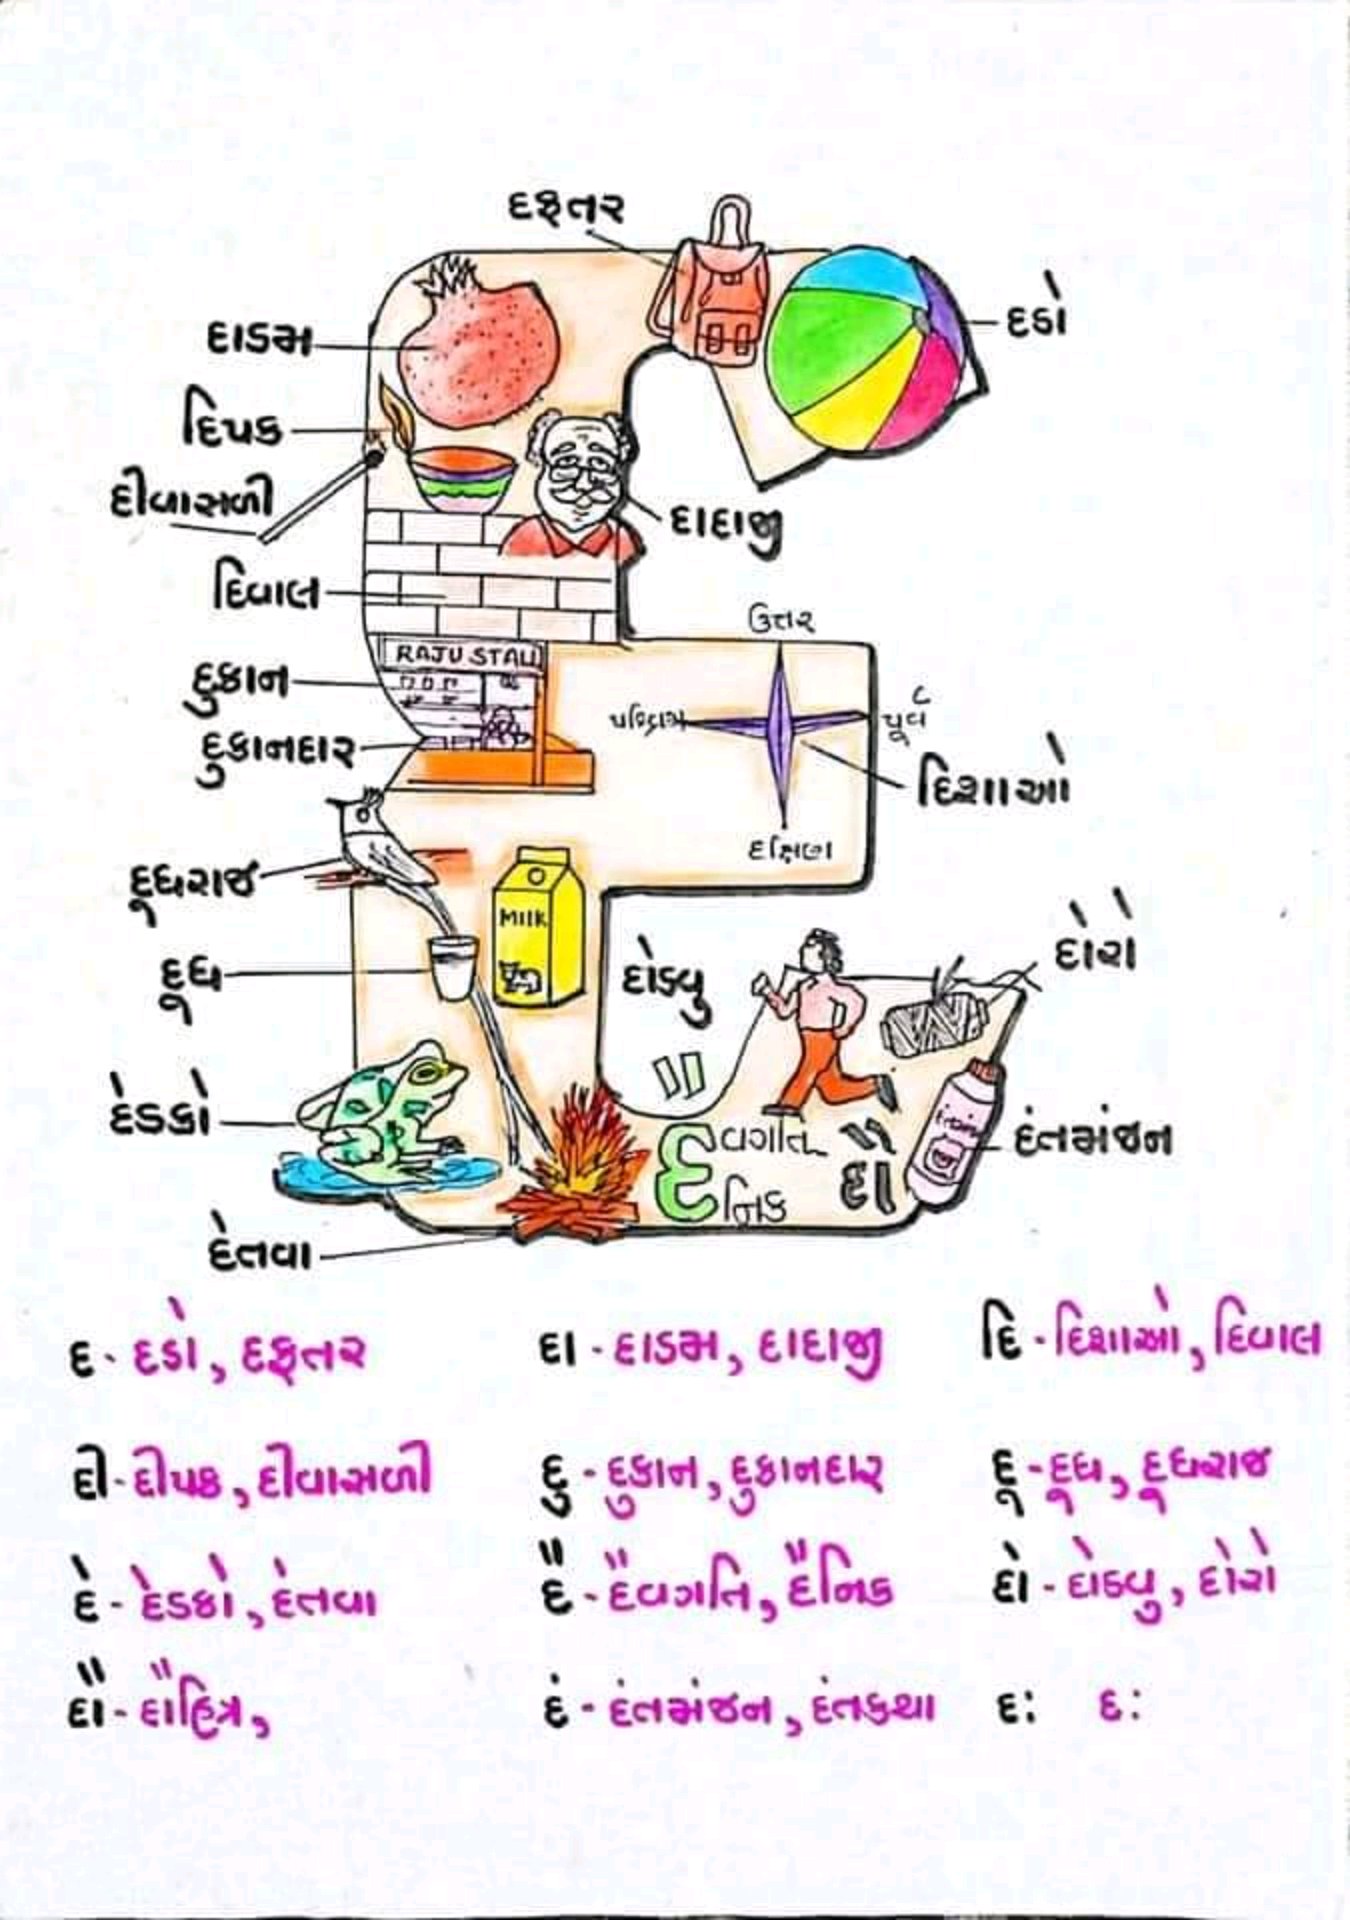 દફતર
દાડમ
દડો
દિપક
દીવાસળી
દાદાજી
દિવાલ
ઉત્તર
RAJU STALL
દુકાન
પશ્ચિમ
પૂર્વ
દુકાનદાર
દિશાઓ
દક્ષિણ
દૂધરાજ
MILK
દૂધ
દોડવુ
દોરો
દેડકો
દૈ
વગતિ
નિક
દૌ
દંતમંજન
દેતવા
દ - દડો, દફતર
દા - દાડમ, દાદાજી
દિ - દિશાઓ, દિવાલ
દી - દીપક, દીવાસળી
દુ - દુકાન, દુકાનદાર
દૂ - દૂધ, દૂધરાજ
દે - દેડકો, દેતવા
દૈ - દૈવગતિ, દૈનિક
દો - દોડવુ, દોરો
દૌ - દૌહિત્ર,
દં - દંતમંજન, દંતકથા
દઃ દઃ